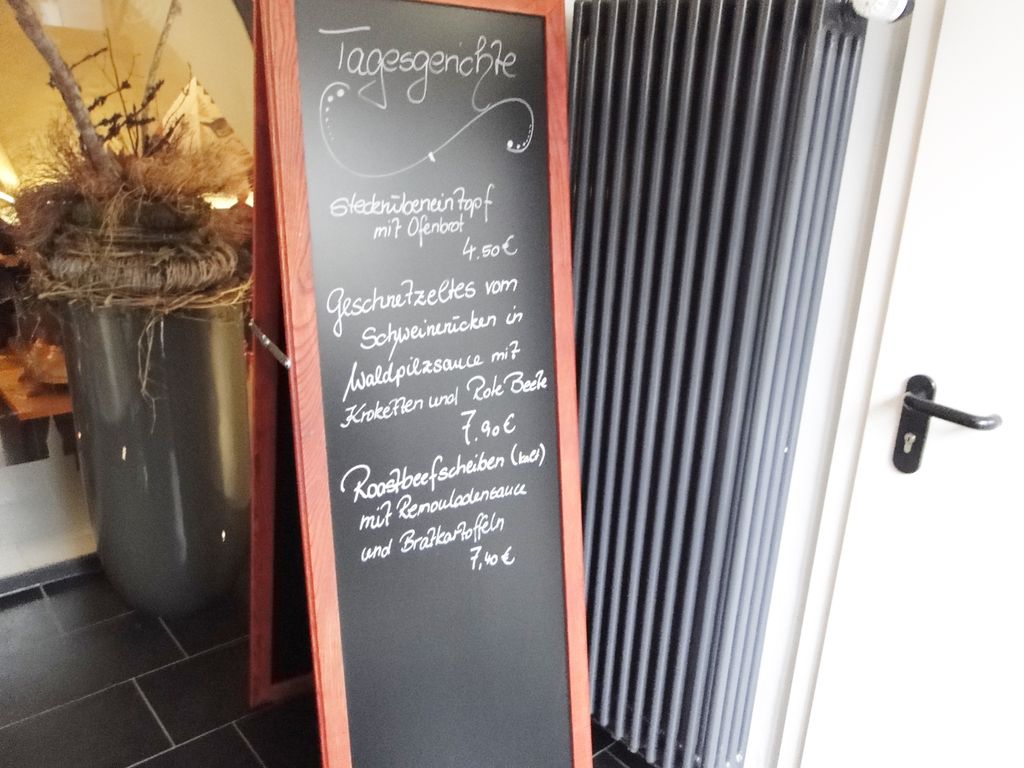 Tagesgerichte
Steckrübeneintopf
mit Ofenbrot
4.50€
Geschnetzeltes vom
Schweinerücken in
Waldpilzsauce mit
Kroketten und Rote Beete
7,90€
Roastbeefscheiben (kalt)
mit Remouladensauce
und Bratkartoffeln
7,40€